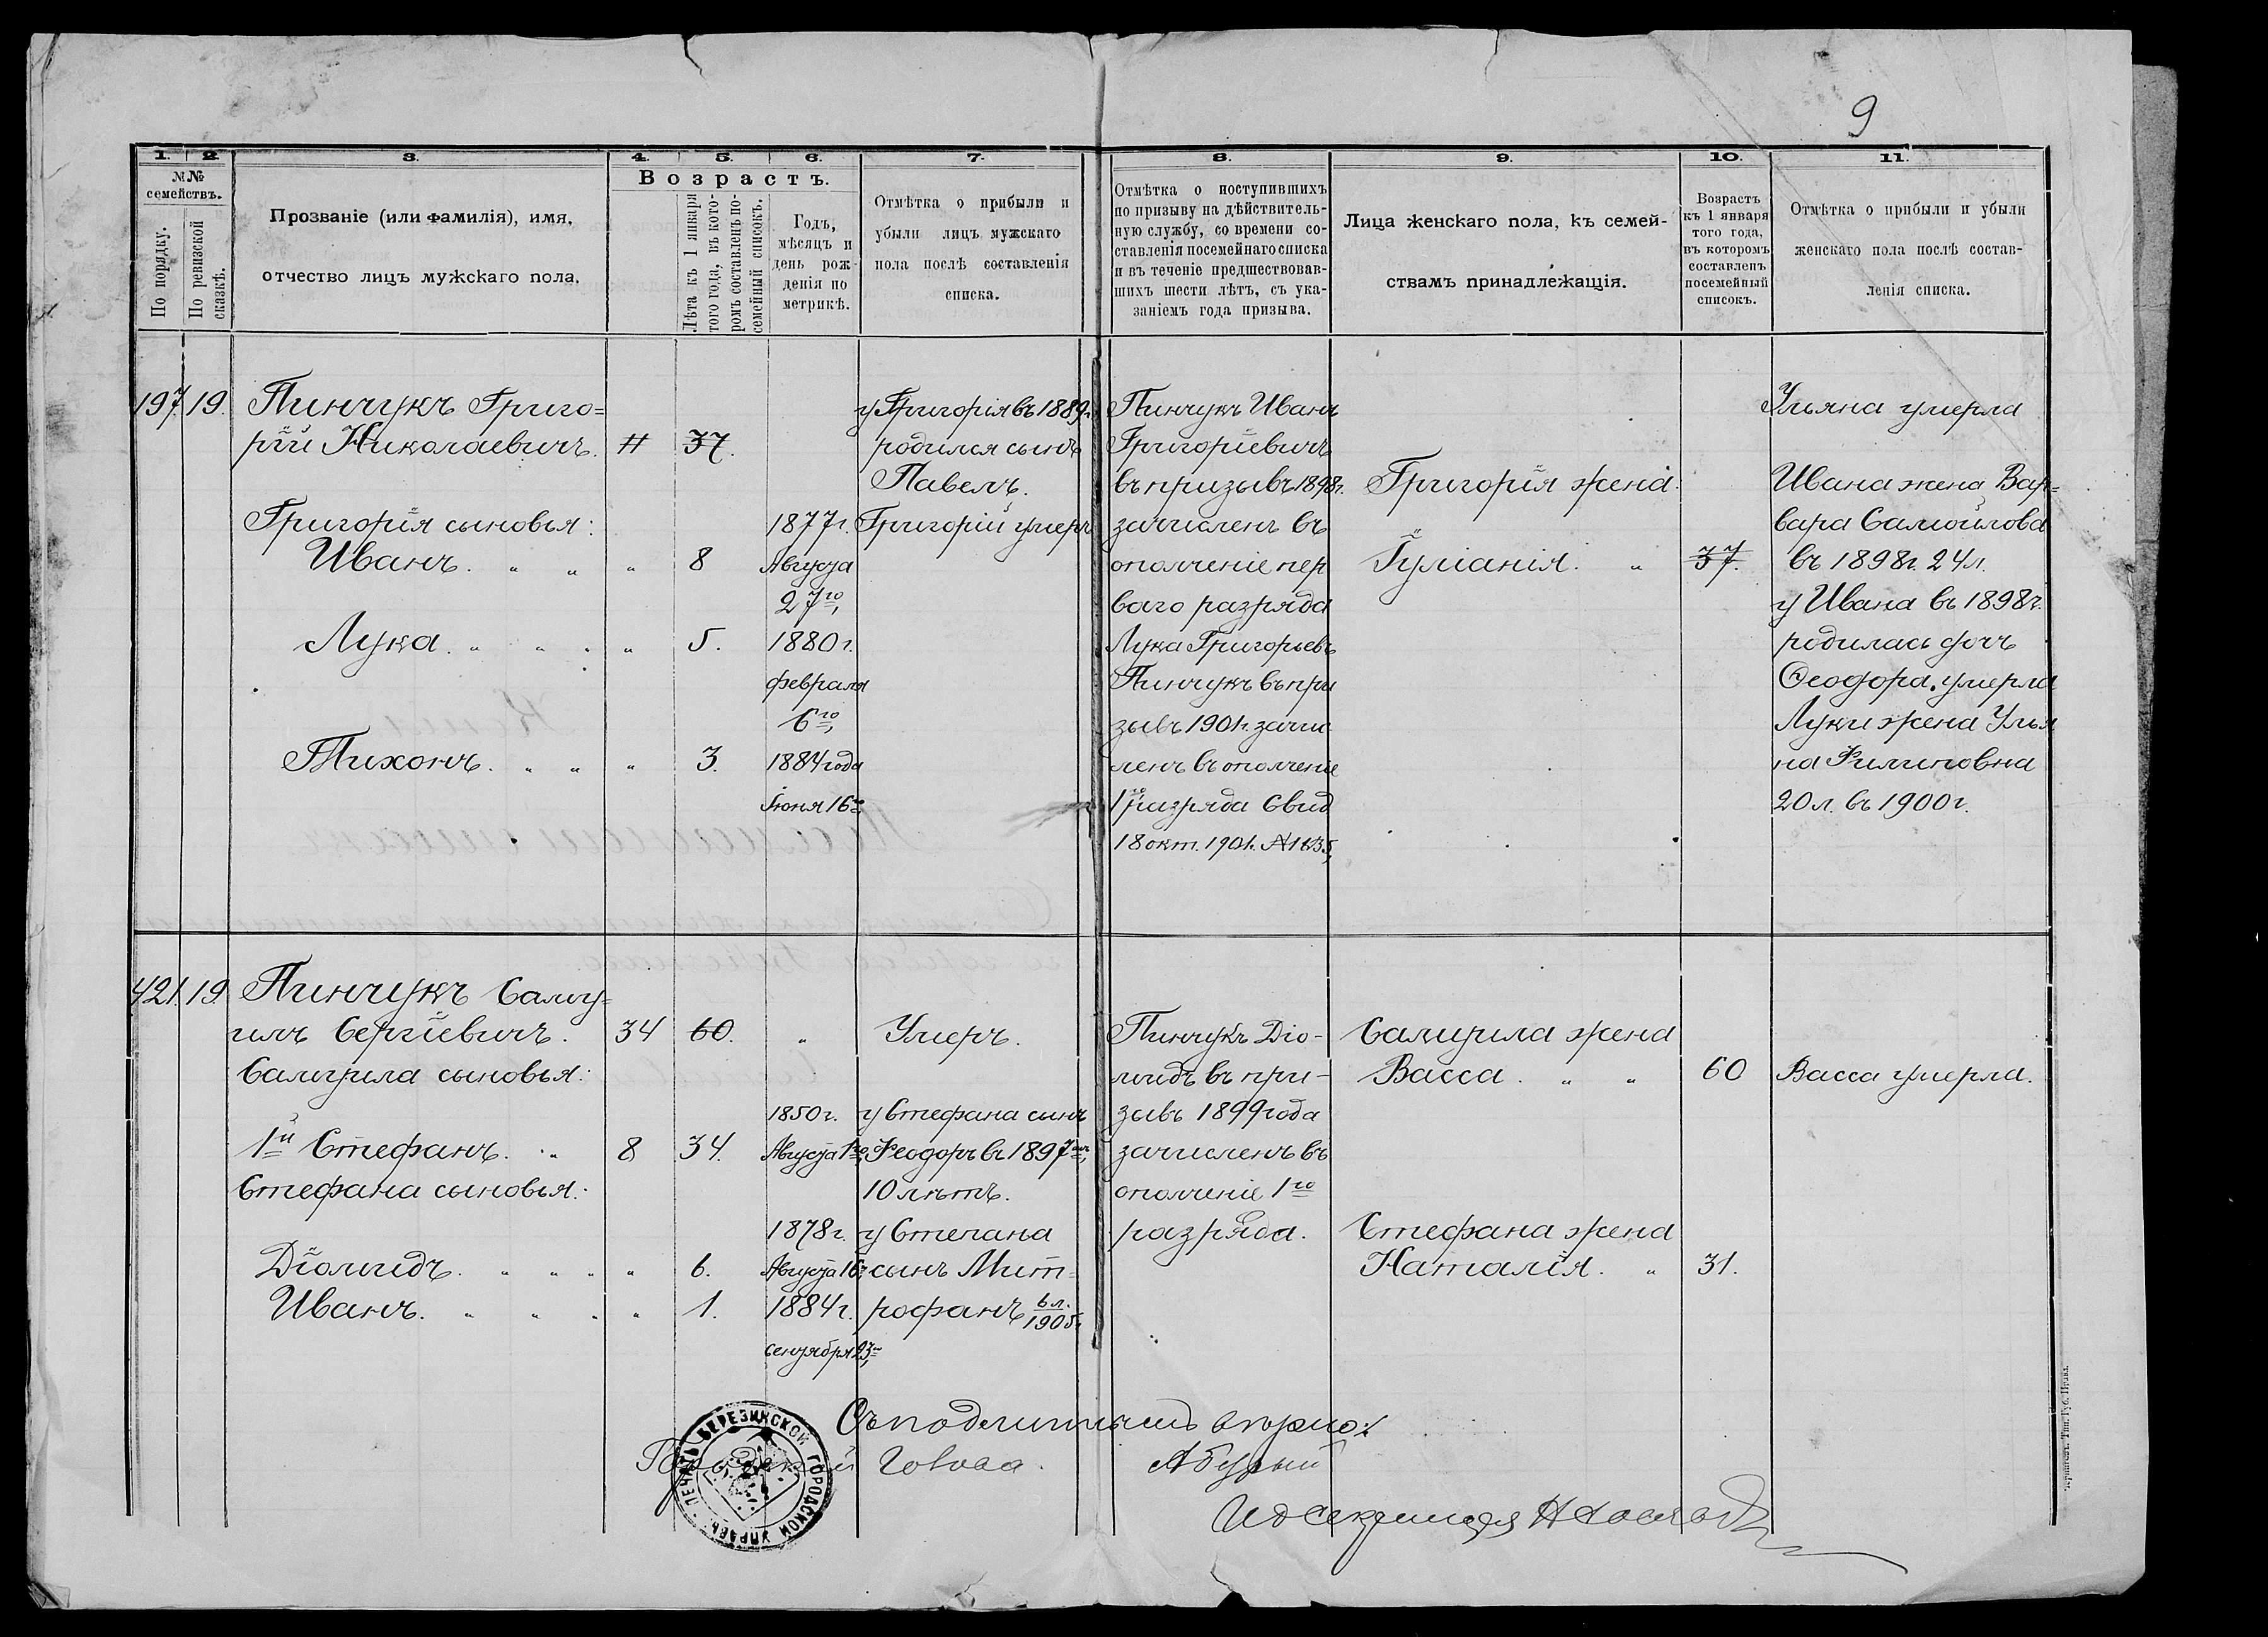 9
1. 2. 3. 4. 5. 6. 7. 8. 9. 10. 11.
№№ семействъ.
По порядку.
По ревизской сказкѣ.
Прозваніе (или фамилія), имя,
отчество лицъ мужскаго пола.
Возрастъ.
Лѣта къ 1 января
того года, въ кото-
ромъ составленъ по-
семейный списокъ.
Годъ,
мѣсяцъ и
день рож-
денія по
метрикѣ.
Отмѣтка о прибыли и
убыли лицъ мужскаго
пола послѣ составленія
списка.
Отмѣтка о поступившихъ
по призыву на дѣйствитель-
ную службу, со времени со-
ставленія посемейнаго списка
и въ теченіе предшествовав-
шихъ шести лѣтъ, съ ука-
заніемъ года призыва.
Лица женскаго пола, къ семей-
ствамъ принадлежащія.
Возрастъ
къ 1 января
того года,
въ которомъ
составленъ
посемейный
списокъ.
Отмѣтка о прибыли и убыли
женскаго пола послѣ состав-
ленія списка.
197. 19. Пинчукъ Григо=
рій Николаевичъ. 11 37.
Григорія сыновья:
Иванъ. " " " 8
Лука. " " " " 5.
Тихонъ. " " " 3.
1877г.
Августа
27го
1880г.
февраля
6го
1884 года
Іюня 16го
у Григорія въ 1889г.
родился сынъ
Павелъ.
Григорій умеръ
Пинчукъ Иванъ
Григоріевичъ
въ призывъ 1898г.
зачисленъ въ
ополченіе пер
ваго разряда
Лука Григорьевъ
Пинчукъ въ при
зывъ 1901г. зачис
ленъ въ ополченіе
1го разряда Свид
18 окт. 1901г. №1635,
Григорія жена
Гуліанія. " 37.
Ульяна умерла
Ивана жена Вар=
вара Самойлова
въ 1898г. 24л.
у Ивана въ 1898г.
родилась дочь
Ѳеодора. умерла
Луки жена Улья
на Филиповна
20л. въ 1900г.
421. 19. Пинчукъ Саму=
илъ Сергіевичъ. 34 60. "
Самуила сыновья:
1й Стефанъ. " 8 34.
Стефана сыновья:
Діомидъ. " " " " 6.
Иванъ. " " " " 1.
1850г.
Августа 1го
1878г.
Августа 16го
1884г.
сентября 23го
Умеръ.
у Стефана сынъ
Феодоръ въ 1897мъ
10 лѣтъ.
у Степана
сынъ Мит=
рофанъ 6л. 1905г.
Пинчукъ Діо-
мидъ въ при-
зывъ 1899 года
зачисленъ въ
ополченіе 1го
разряда.
Самуила жена
Васса. " " 60
Стефана жена
Наталія. " 31.
Васса умерла.
Съ подлиннымъ вѣрно:
Городской Голова
ПЕЧАТЬ БЕРЕЗИНСКОЙ ГОРОДСКОЙ УПРАВЫ